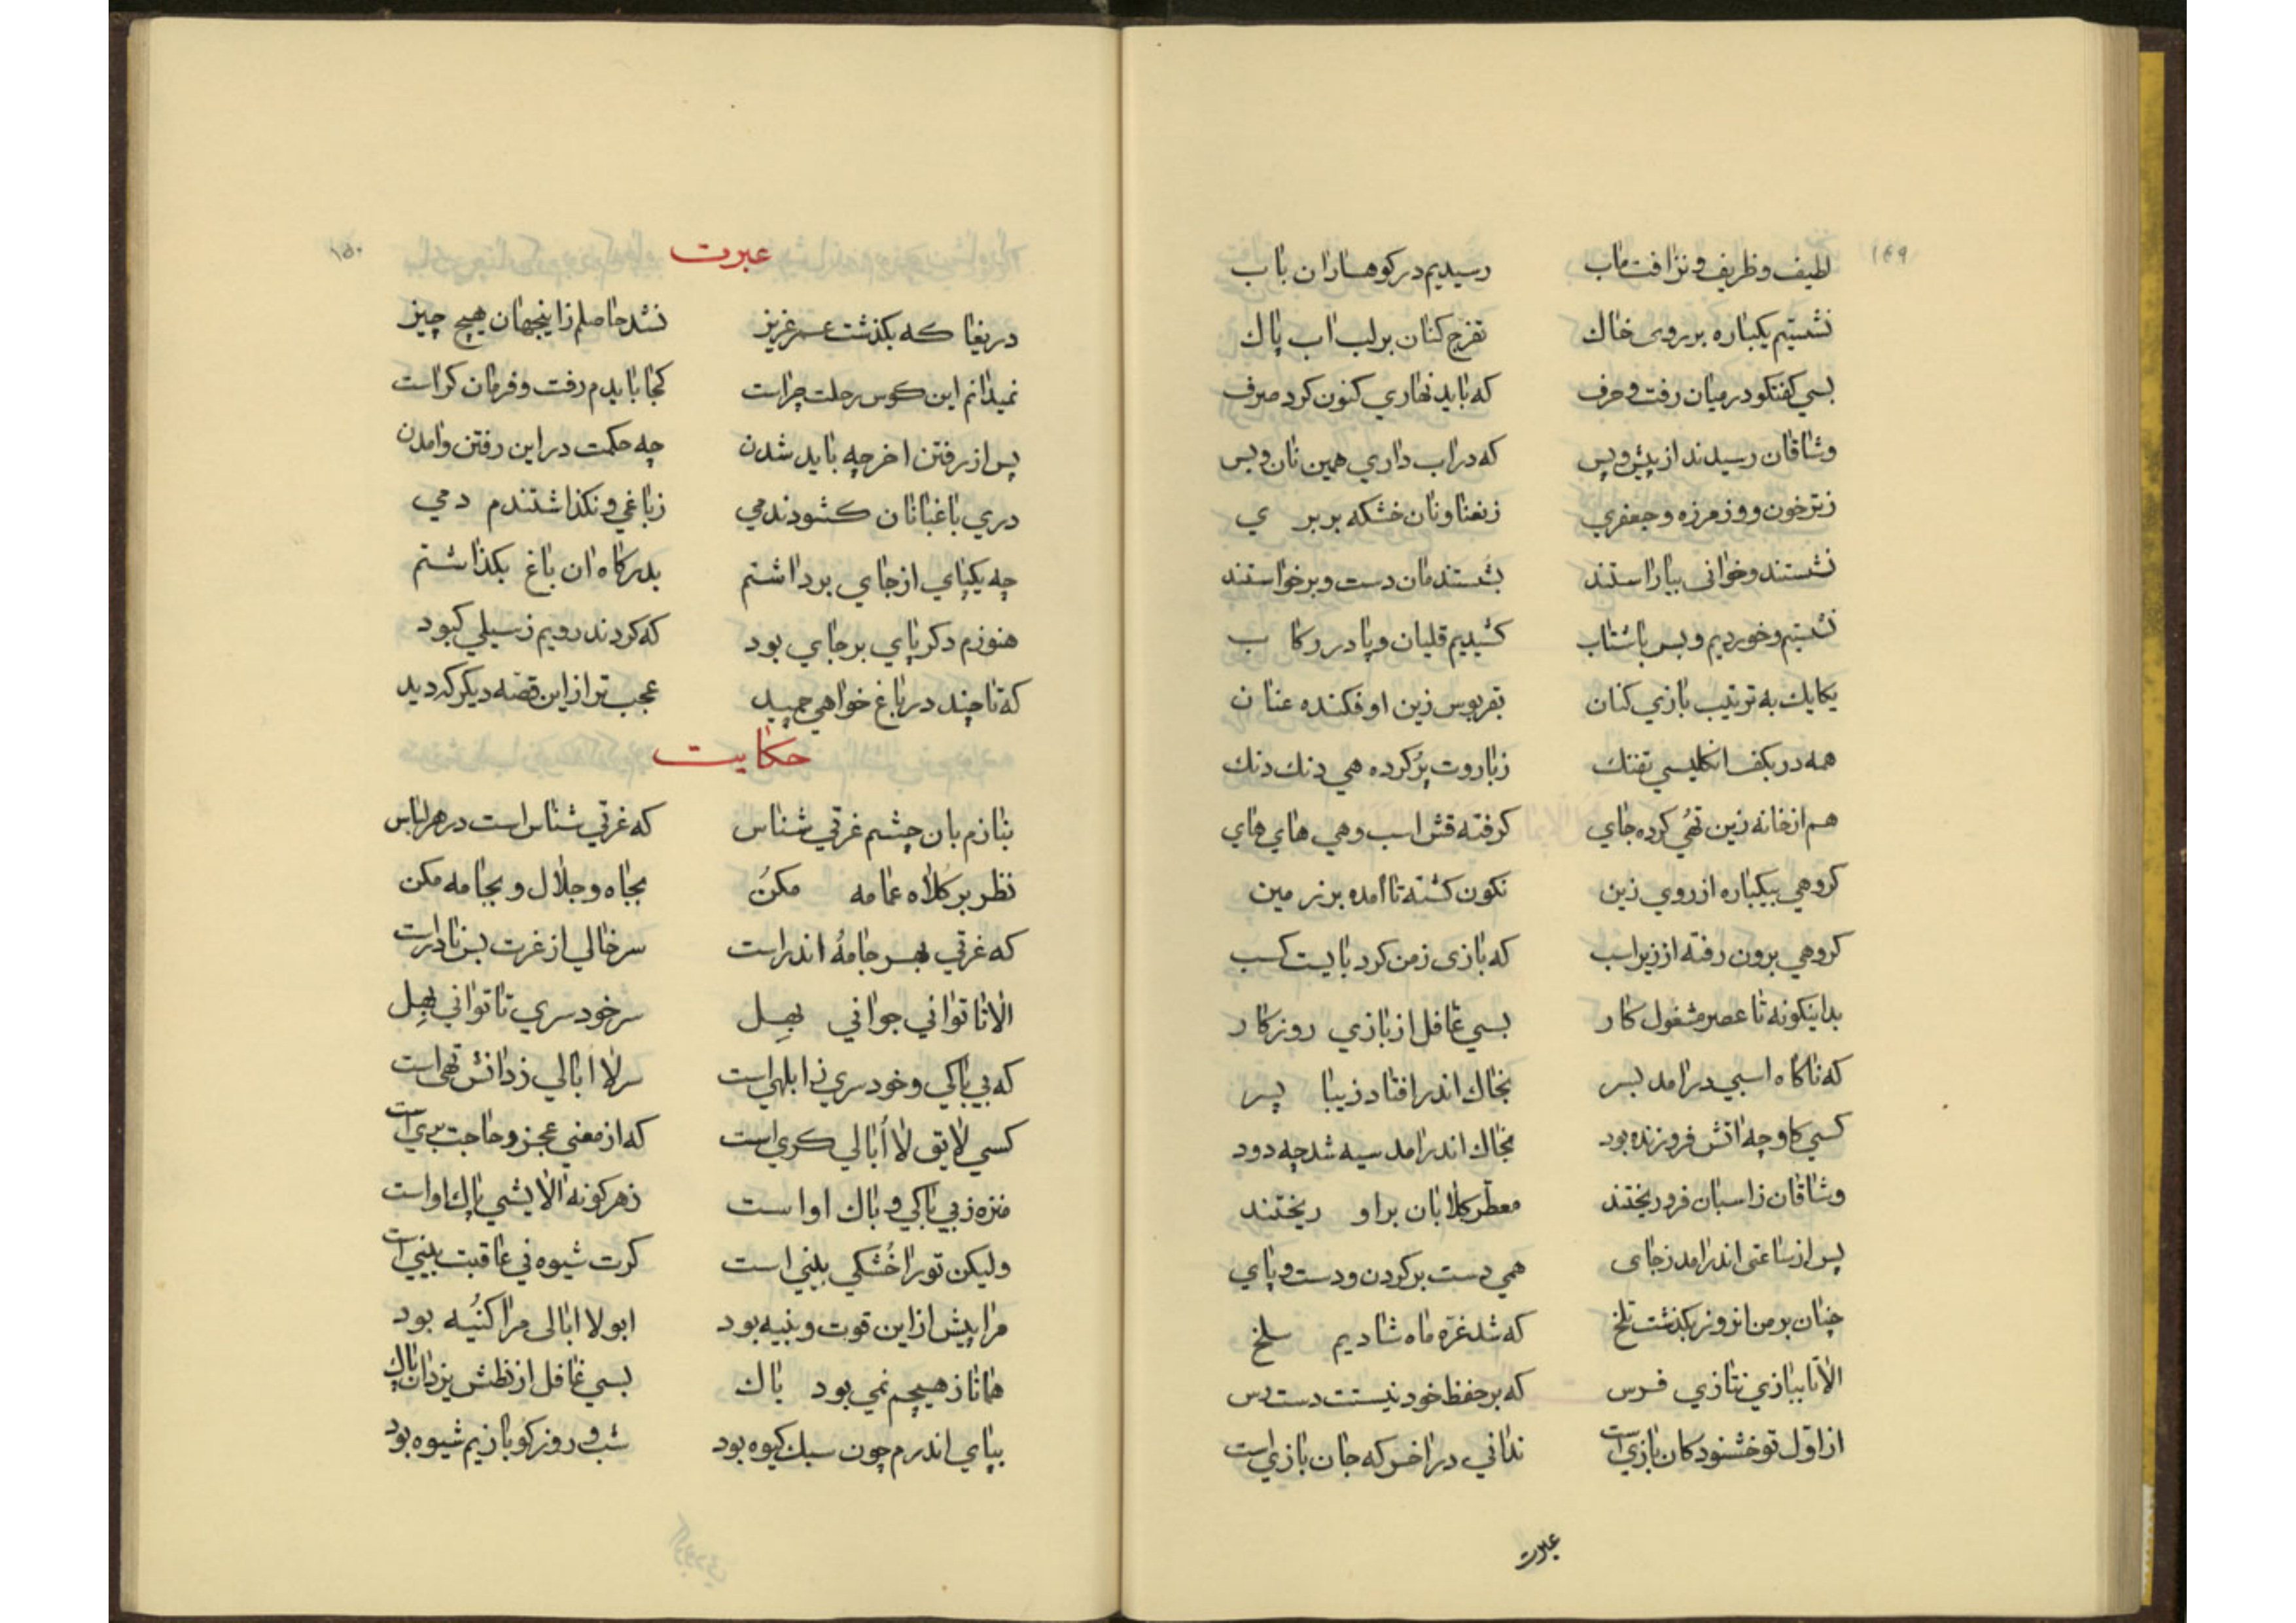 ۱۴۹
لطیف و ظریف و نزافت ماب رسیدیم در کوهساران باب
نشستیم یکباره بر روی خاک تفرج کنان بر لب اب پاک
بسی کفتکو در میان رفت و حرف که باید نهاری کنون کرد صرف
وشاقان رسیدند از پیش و پس که در اب داری همین نان و بس
زترخون و وز مرزه و جعفری زنعنا و نان خشکه بربر ی
نشستند و خوانی بیاراستند بشستندمان دست و برخواستند
نشستیم و خوردیم و بس باشتاب کشیدیم قلیان و پا در رکا ب
یکایک به ترتیب بازی کنان بقربوس زین او فکنده عنا ن
همه در بکف انکلیسی تفنک زباروت پر کرده هی دنک دنک
هم از خانه زین تهی کرده جای کرفته قش اسب و هی های های
کروهی بیکباره از روی زین نکون کشته تا امده بر زمین
کروهی برون رفته از زیر اسب که بازی زمن کرد بایست کسب
بداینکونه تا عصر مشغول کار بسی غافل از بازی روزکار
که ناکاه اسبی درامد بسر بخاک اندر افتاد زیبا پسر
کسی کاو چه اتش فروزنده بود بخاک اندر امد سیه شد چه دود
وشاقان زاسبان فرو ریختند معطر کلابان بر او ریختند
پس از ساعتی اندر امد زجای همی دست بر کردن و دست و پای
چنان بر من انروز بکذشت تلخ که شد غره ماه شادیم سلخ
الا تا ببازی نتازی فرس که بر حفظ خود نیستت دست رس
از اول تو خشنود کان بازی است ندانی در اخر که جان بازی است
عبرت
۱۵۰
عبرت
دریغا که بکذشت عمر عزیز نشد حاصلم زاینجهان هیچ چیز
نمیدانم این کوس رحلت چراست کجا بایدم رفت و فرمان کراست
پس از رفتن اخر چه باید شدن چه حکمت در این رفتن و امدن
دری باغبانان کشودندمی زباغی و نکذاشتندم دمی
چه یکپای از جای برداشتم بدرکاه ان باغ بکذاشتم
هنوزم دکر پای بر جای بود که کردند رویم زسیلی کبود
که تا چند در باغ خواهی چمید عجب تر از این قصه دیکر که دید
حکایت
بنازم بان چشم غرتی شناس که غرتی شناس است در هر لباس
نظر بر کلاه عمامه مکن بجاه و جلال و بجامه مکن
که غرتی بهر جامه اندر است سر خالی از غرت بس نادر است
الا تا توانی جوانی بهل سر خود سری تا توانی بهل
که بی باکی و خود سری زابلهی است سر لا ابالی زدانش تهی است
کسی لایق لا ابالی کری است که از معنی عجز و حاجت بری است
منزه زبی باکی و باک او است زهر کونه الایشی پاک او است
ولیکن تو را خشکی بینی است کرت شیوه نی عاقبت بینی است
مرا پیش از این قوت و بنیه بود ابو لا ابالی مرا کنیه بود
همانا زهیچم نمی بود باک بسی غافل از بطش یزدان پاک
بپای اندرم چون سبک کیوه بود شب و روز کو بازیم شیوه بود